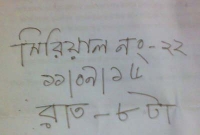 সিরিয়াল নং-২২
১১|০৯|১৫
রাত - ৮ টা